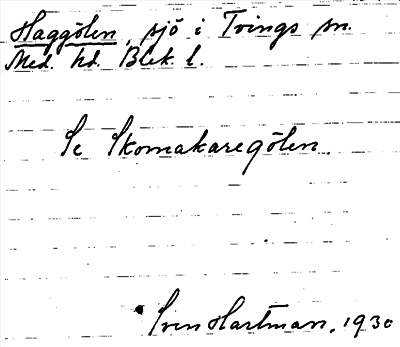 Haggölen, sjö i Tvings sn.
Med. hd. Blek. l.
Se Skomakaregölen.
Sven Hartman, 1930